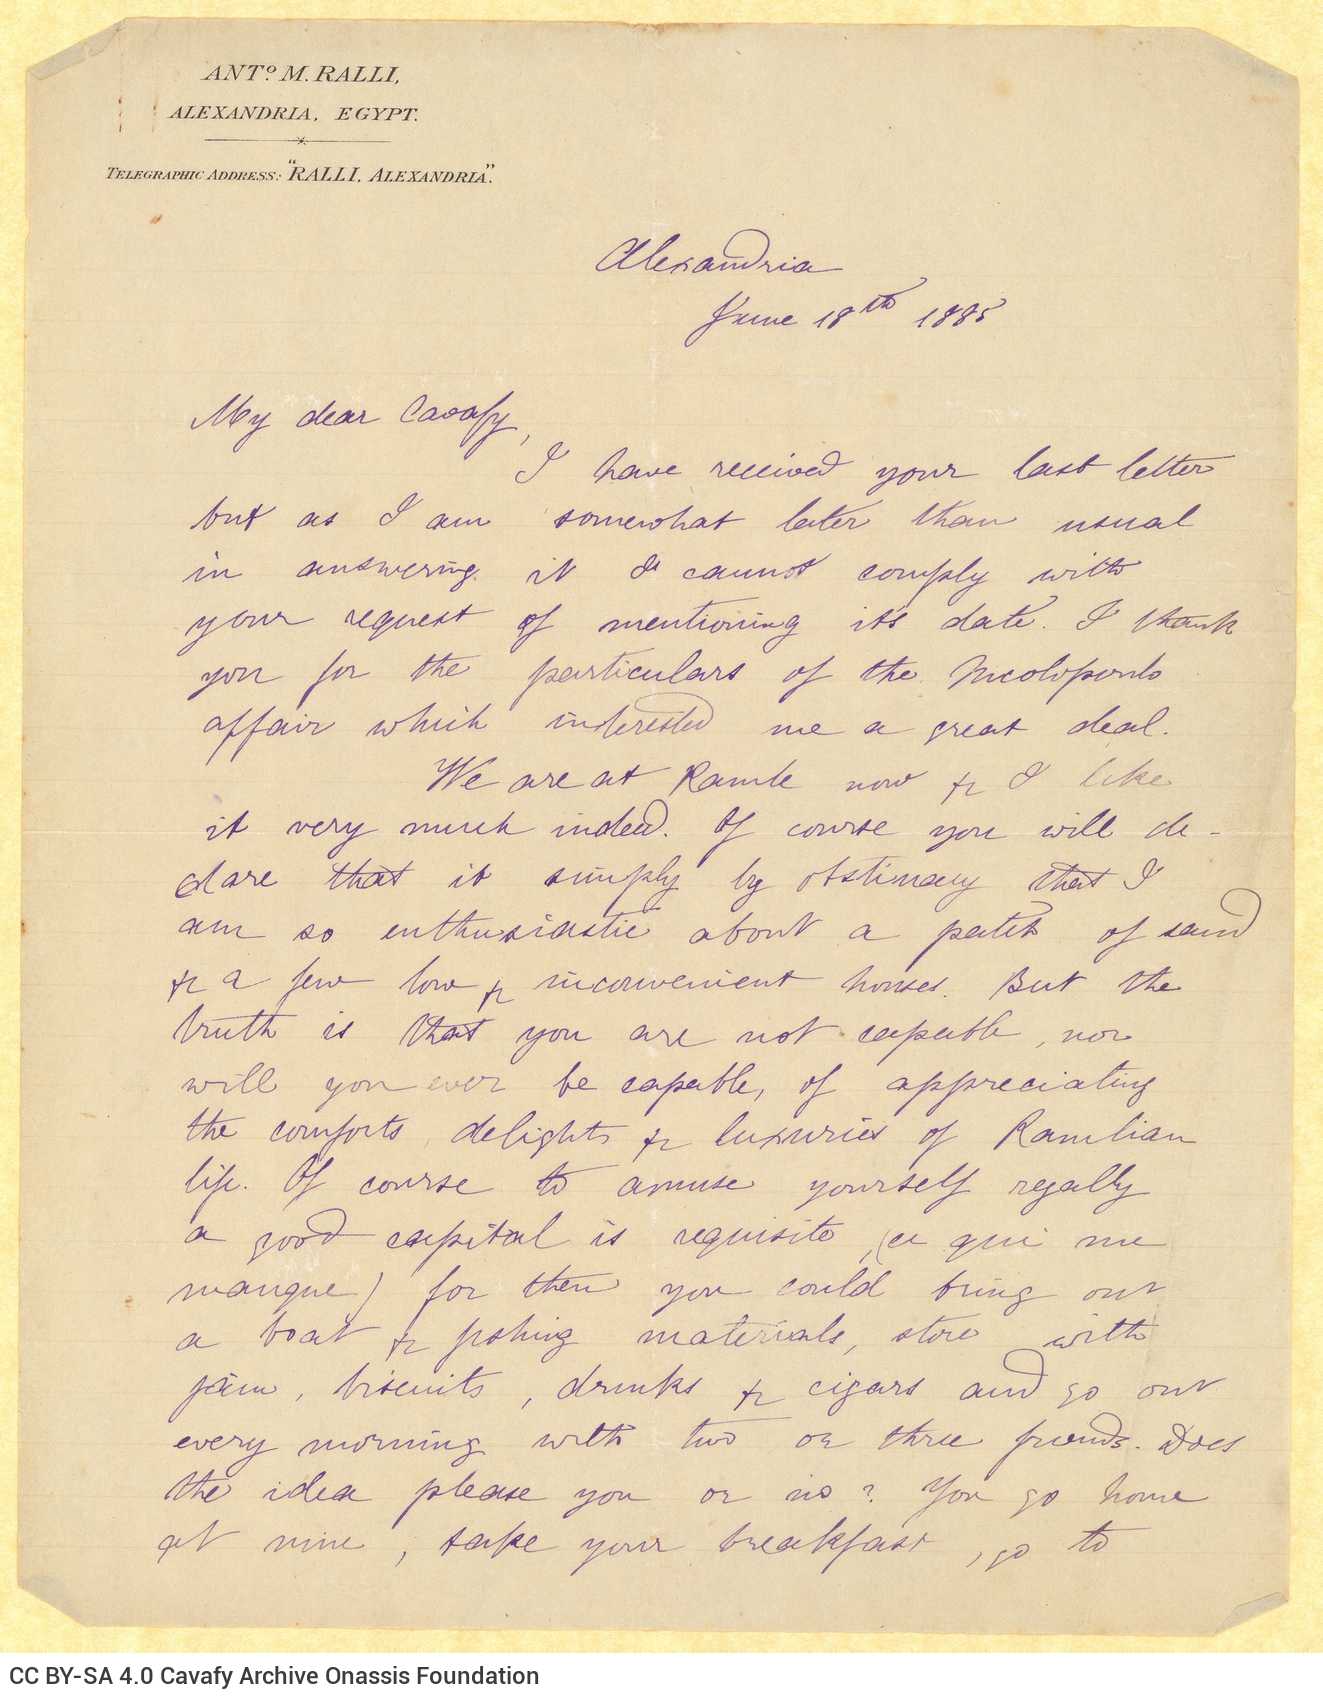 ANTº M. RALLI,
ALEXANDRIA, EGYPT.
TELEGRAPHIC ADDRESS: "RALLI, ALEXANDRIA".
Alexandria
June 18th 1885
My dear Cavafy,
I have received your last letter
but as I am somewhat later than usual
in answering it I cannot comply with
your request of mentioning its date. I thank
you for the particulars of the Nicolopoulo
affair which interested me a great deal.
We are at Ramle now & I like
it very much indeed. Of course you will de-
clare that it simply by obstinacy that I
am so enthusiastic about a patch of sand
& a few low & inconvenient houses. But the
truth is that you are not capable, nor
will you ever be capable, of appreciating
the comforts, delights & luxuries of Ramlian
life. Of course to amuse yourself regally
a good capital is requisite, (ce qui me
manque) for then you could bring out
a boat & fishing materials, store with
jam, biscuits, drinks & cigars and go out
every morning with two or three friends. Does
the idea please you or no? You go home
at nine, take your breakfast, go to
CC BY-SA 4.0 Cavafy Archive Onassis Foundation